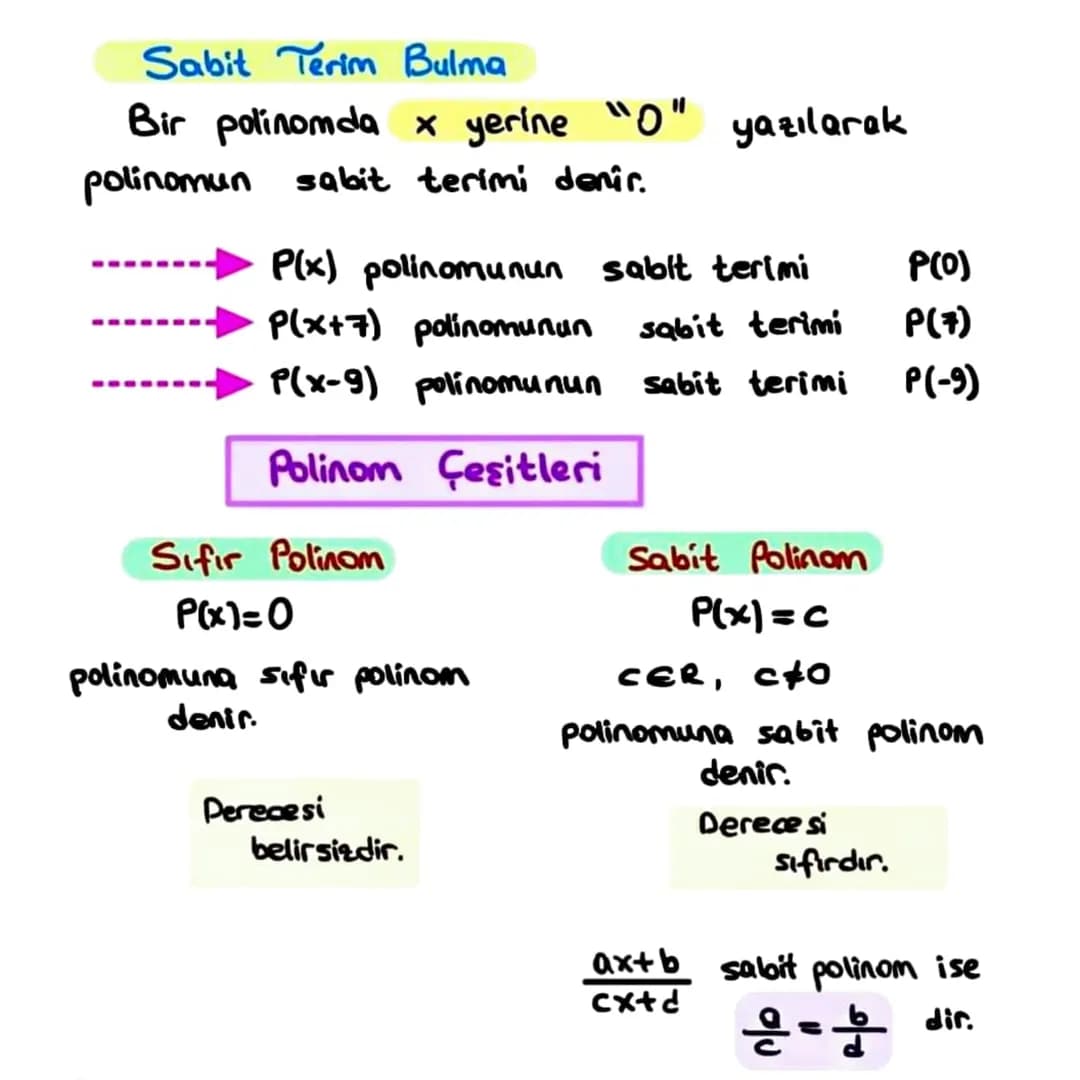 Sabit Terim Bulma
Bir polinomda x yerine "0" yazılarak
polinomun sabit terimi denir.
P(x) polinomunun sabit terimi P(0)
P(x+7) polinomunun sabit terimi P(7)
P(x-9) polinomunun sabit terimi P(-9)
Polinom Çeşitleri
Sıfır Polinom
P(x)=0
polinomuna sıfır polinom
denir.
Derecesi
belirsizdir.
Sabit Polinom
P(x)=c
c∈R, c≠0
polinomuna sabit polinom
denir.
Derecesi
sıfırdır.
ax+b / cx+d sabit polinom ise
a/c = b/d dir.